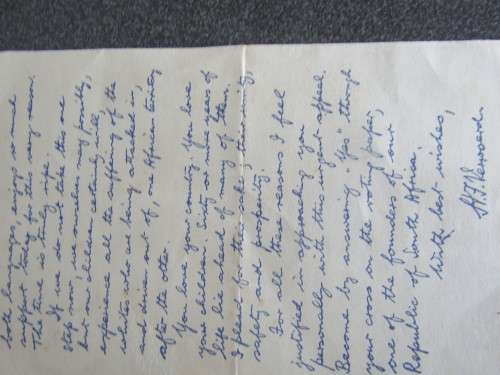 both languages, enjoys such
support today for this very reason.
The time is truly ripe.
If we do not take this one
step now, we ourselves may possibly,
but our children certainly will
experience all the suffering of the
whites who are being attacked in,
and driven out of, one African territory
after the other.
You love your country. You love
your children. Sixty or more years of
life lie ahead of many of them.
I plead for their safety, training,
safety and property.
For all these reasons I feel
justified in approaching you
personally with this urgent appeal.
Become by answering "Yes" through
your cross on the voting paper,
one of the founders of our
Republic of South Africa.
With best wishes,
H.F. Verwoerd